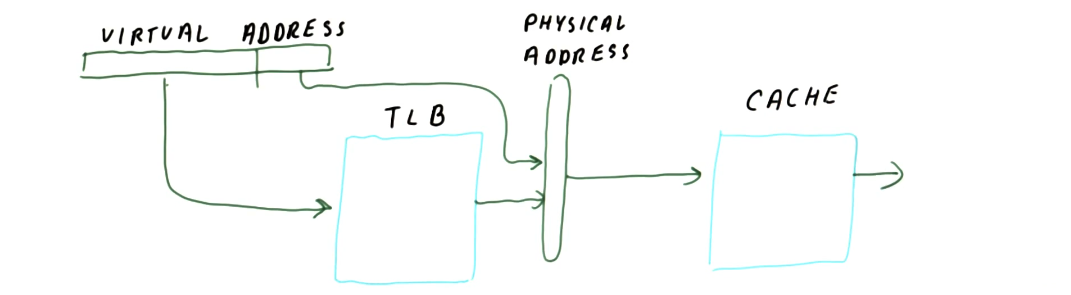 VIRTUAL ADDRESS
PHYSICAL
ADDRESS
TLB
CACHE